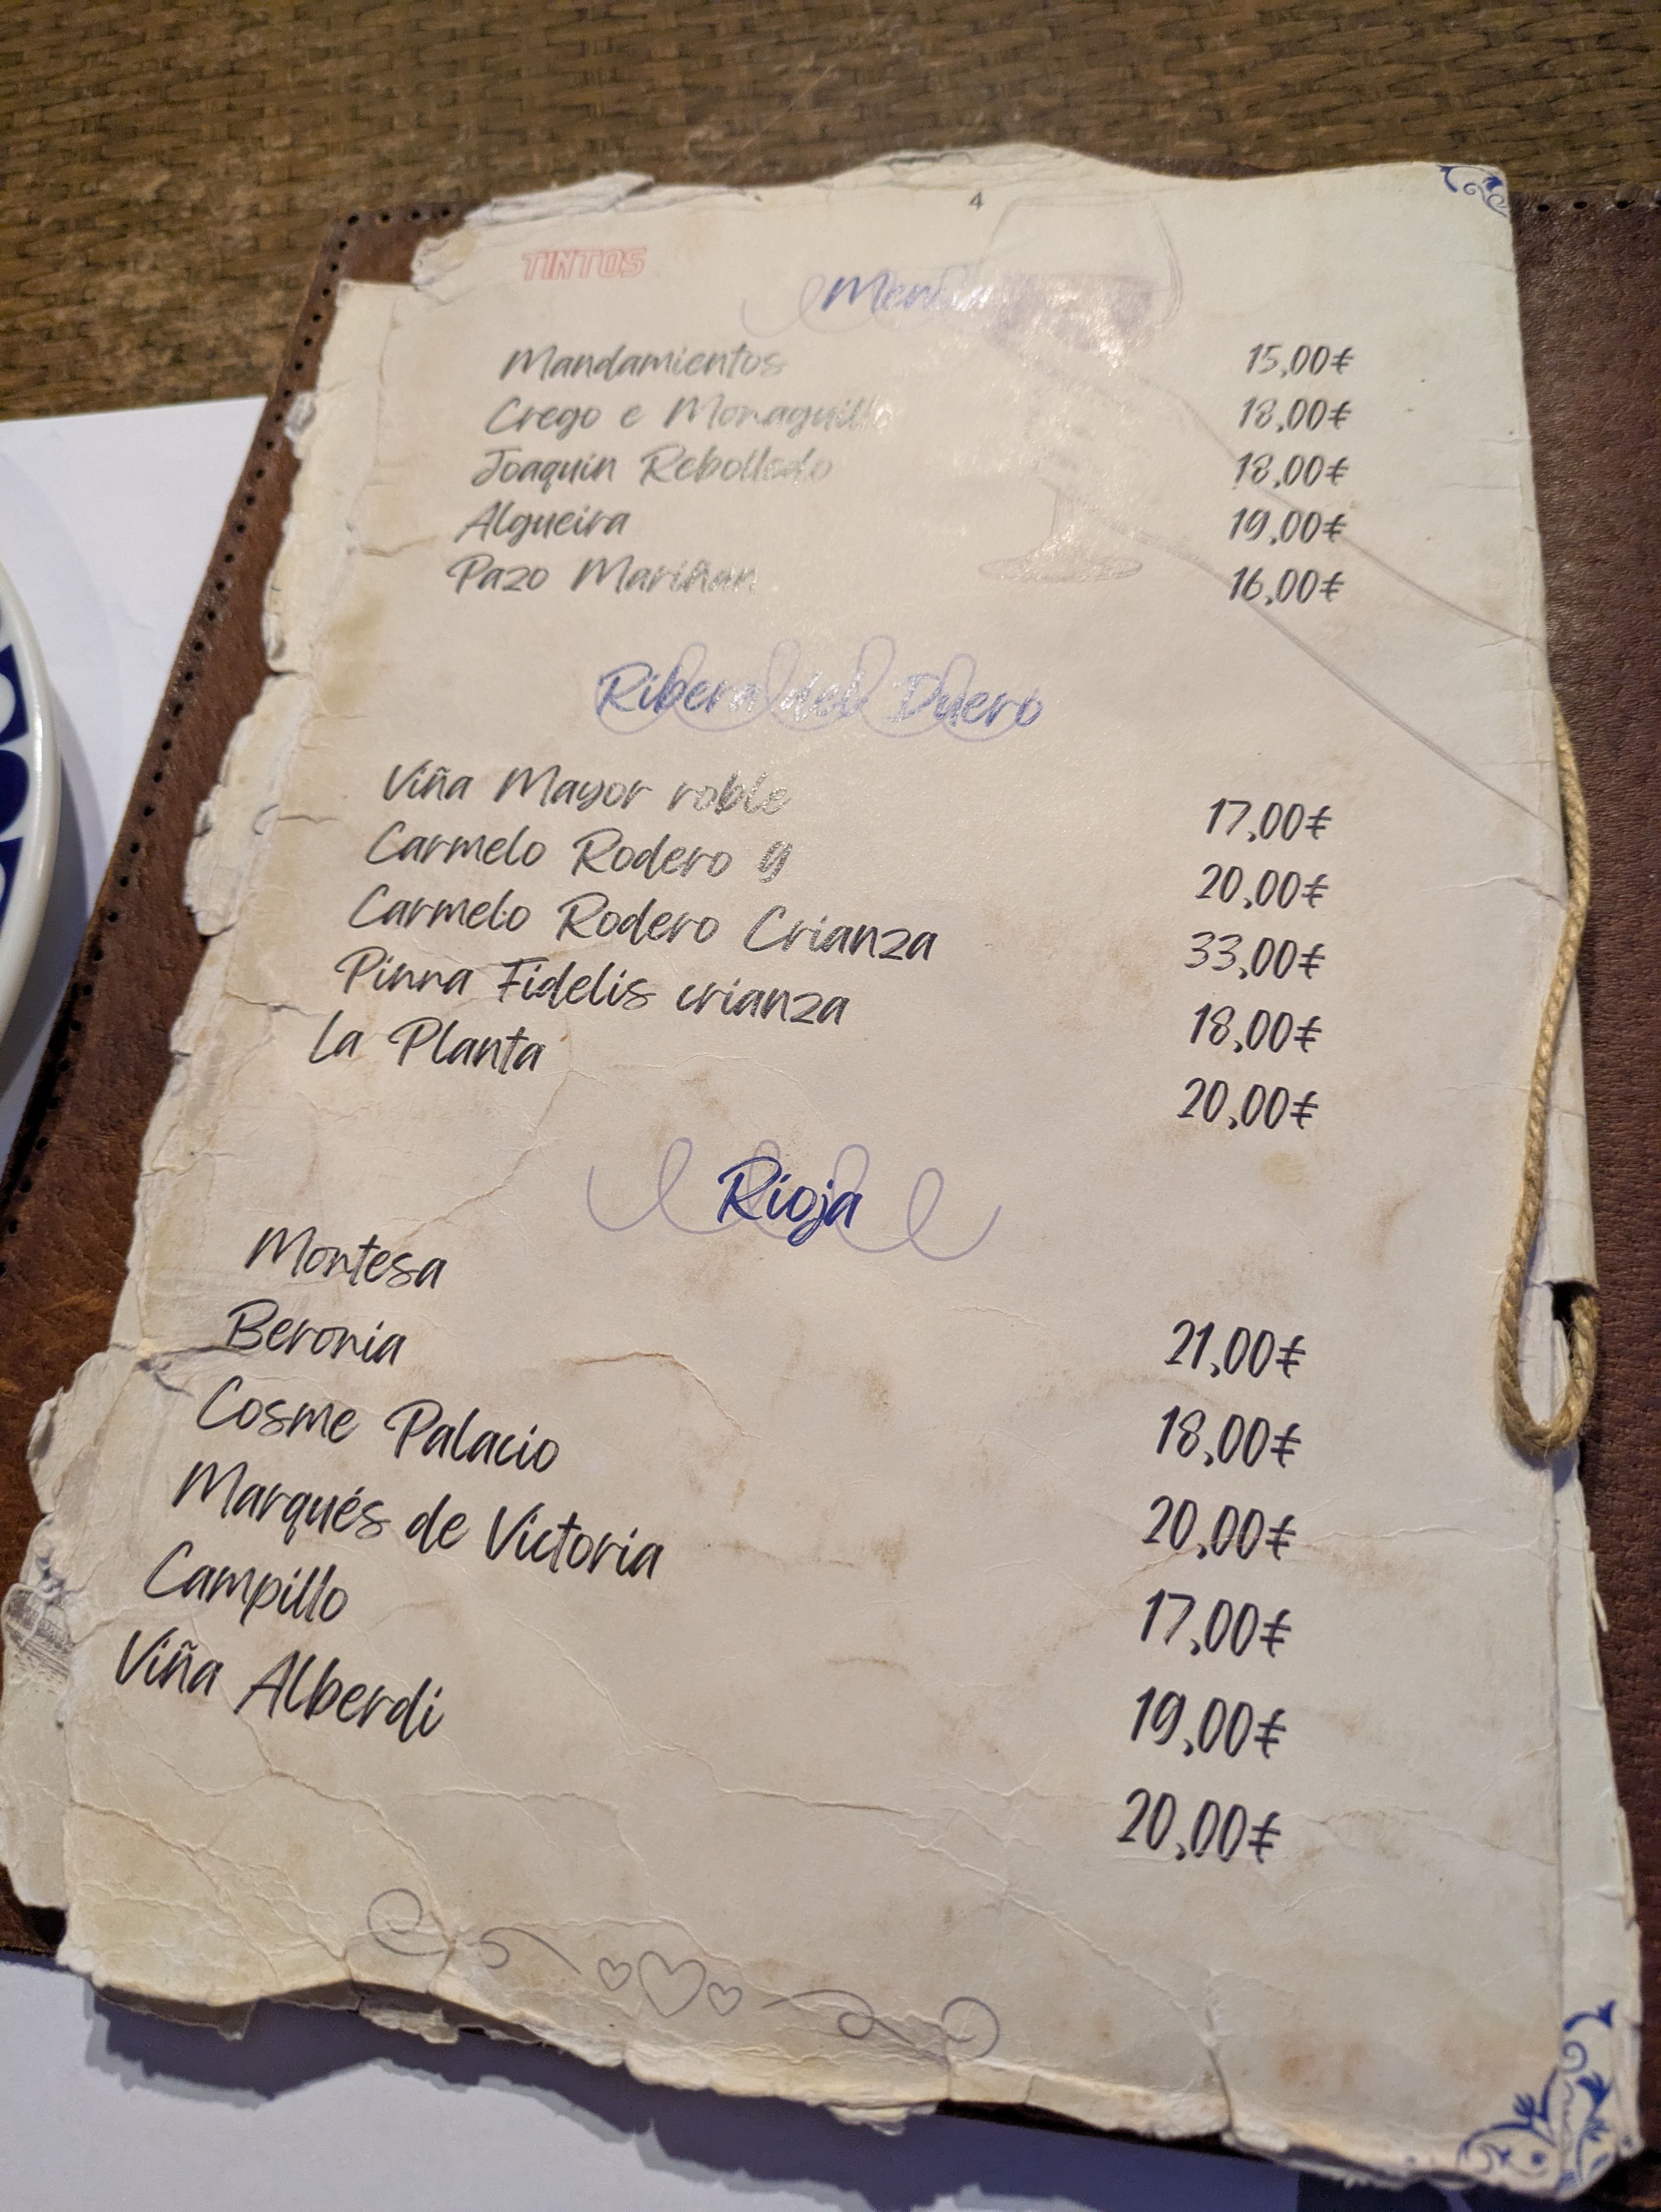 4
TINTOS
Mencía
Mandamientos 15,00€
Crego e Monaguillo 18,00€
Joaquin Rebolledo 18,00€
Algueira 19,00€
Pazo Mariñan 16,00€
Ribera del Duero
Viña Mayor roble 17,00€
Carmelo Rodero 9 20,00€
Carmelo Rodero Crianza 33,00€
Pinna Fidelis crianza 18,00€
La Planta 20,00€
Rioja
Montesa 21,00€
Beronia 18,00€
Cosme Palacio 20,00€
Marqués de Victoria 17,00€
Campillo 19,00€
Viña Alberdi 20,00€